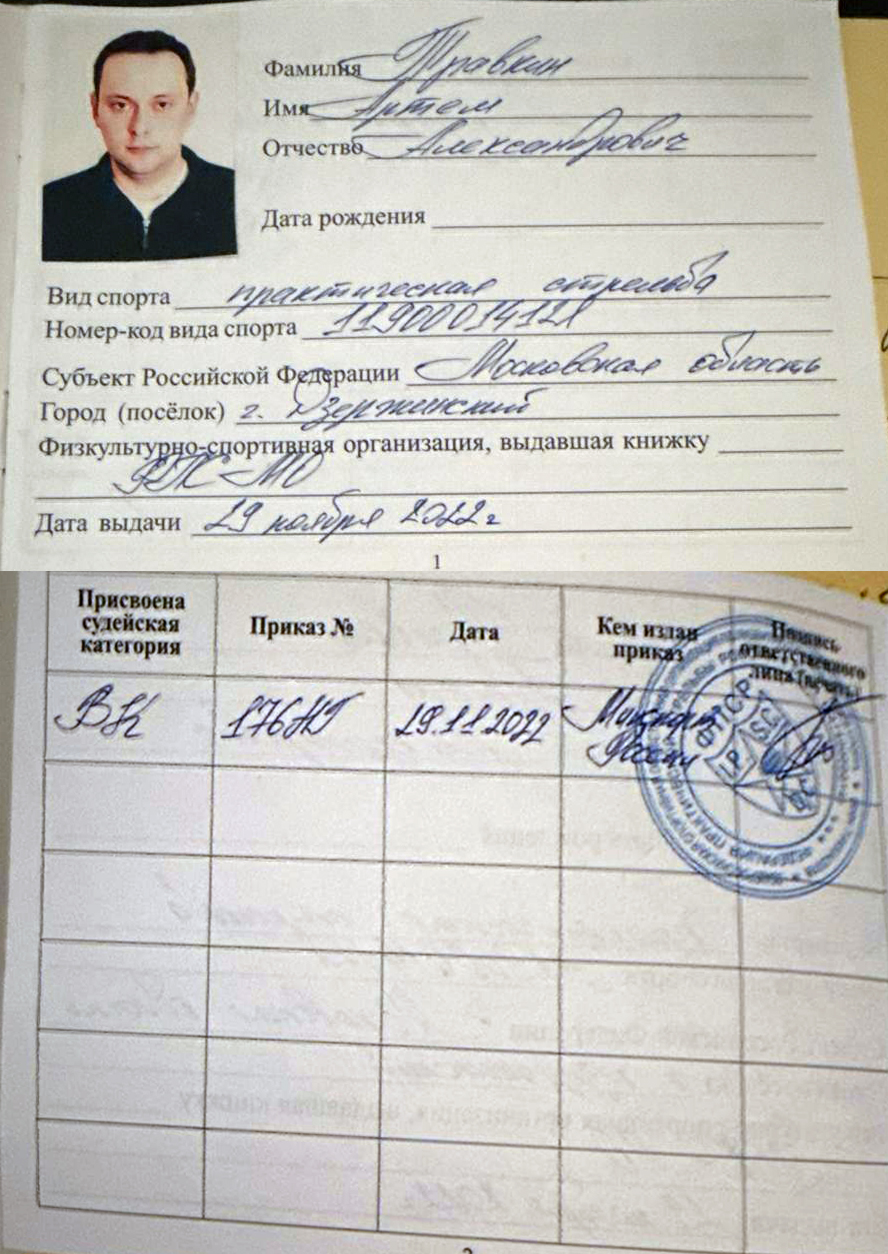 Фамилия Травкин
Имя Артем
Отчество Александрович
Дата рождения
Вид спорта практическая стрельба
Номер-код вида спорта 1190001412Л
Субъект Российской Федерации Московская область
Город (посёлок) г. Дзержинский
Физкультурно-спортивная организация, выдавшая книжку
ФПС-МО
Дата выдачи 29 ноября 2022 г
1
Присвоена судейская категория
Приказ №
Дата
Кем издан приказ
Подпись ответственного лица (печать)
ВК 176НГ 29.11.2022 Минспорт
России
2